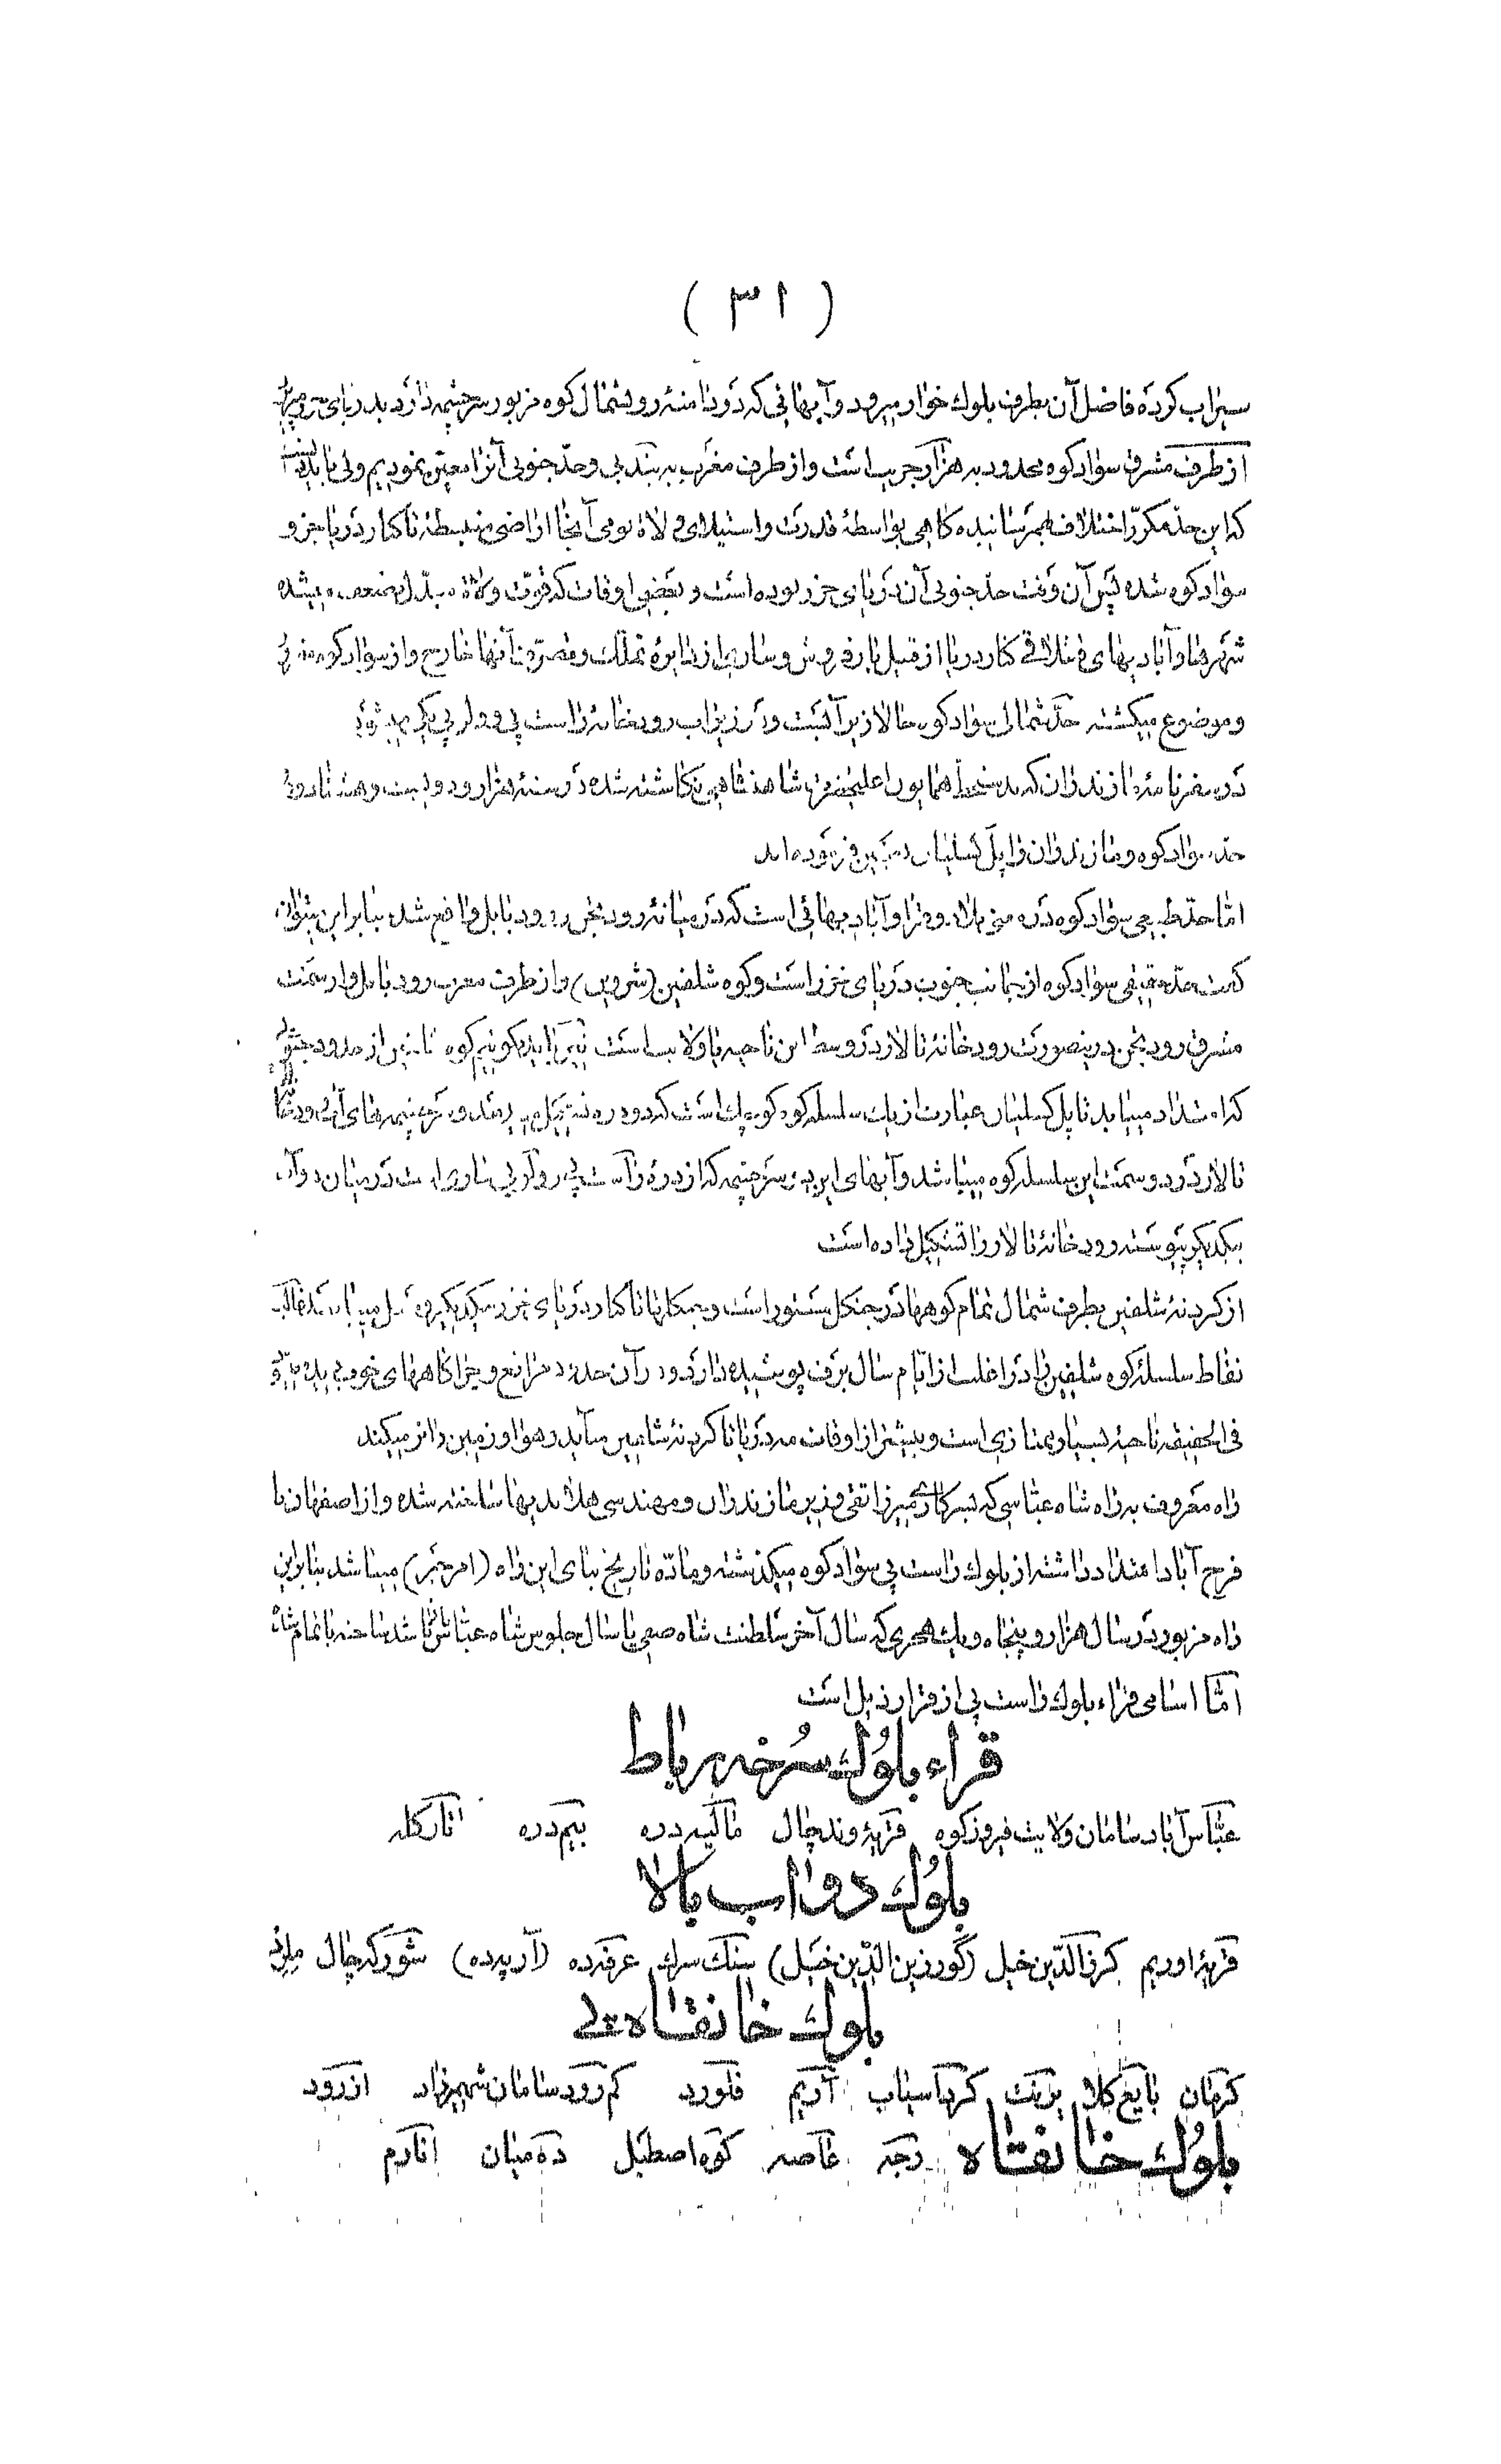 ( ٣١ )
سیراب کرده فاضل آن بطرف بلوك خوار میرود و آبهائی که در دامنهٔ رو بشمال کوه مزبور سرچشمه دارد بدریای خزر میریزد
از طرف مشرق سوادکوه محدود به هزار جریب است و از طرف مغرب به بندپی و حدّ جنوبی آنرا معیّن نمودیم ولی باید دانست
که این حدّ مکرّر اختلاف بهمرسانیده گاهی بواسطهٔ قدرت و استیلای ولاة بومی آنجا اراضی منبسطه تا کنار دریا جزو
سوادکوه شده پس آن وقت حدّ جنوبی آن دریای خزر بوده است و بعضی اوقات که قوّت ولاة مبدّل بضعف میشده
شهرها و آبادیهای قشلاقی کنار دریا از قبیل بارفروش و ساری از دایرهٔ تملّك و تصرّف آنها خارج و از سوادکوه
و موضوع میگشته حدّ شمالی سوادکوه حالا زیرآبست و در زیراب رودخانهٔ راست پی و ولوپی یکی میشود
در سفرنامهٔ مازندران که بدستخط همایون اعلیحضرت شاهنشاهی نگاشته شده در سنهٔ هزار و دویست و هفتاد و
حدّ سوادکوه و مازندران را پل کسلیان معیّن فرموده اند
امّا حدّ طبیعی سوادکوه درّه و بلاد و قرا و آبادیهائی است که در میانهٔ رود تجن و رود بابل واقع شده بنابراین میتوان
گفت حدّ حقیقی سوادکوه از جانب جنوب دریای خزر است و کوه شلفین (شروین) و از طرف مغرب رود بابل و از سمت
مشرق رود تجن درینصورت رودخانهٔ تالار در وسط این ناحیه یا ولایت است نیز باید بگوئیم کوه
که امتداد مییابد تا پل کسلیان عبارت از یك سلسله کوه کوچك است که دو درّه تشکیل میدهد و سرچشمه های آب رودخانهٔ
تالار در دو سمت این سلسله کوه میباشد و آبهای این دو سرچشمه که از درّهٔ راست پی و ولوپی جاری است در میان دوآب
بیکدیگر پیوسته رودخانهٔ تالار را تشکیل داده است
از گردنهٔ شلفین بطرف شمال تمام کوهها در جنگل مستور است و جنگلها تا کنار دریای خزر بیکدیگر متّصل میباشد غالب
نقاط سلسله کوه شلفین را در اغلب از ایّام سال برف پوشیده دارد و در آن حدود مراتع و چراگاههای خوب دیده میشود
فی الحقیقه ناحیهٔ بسیار ممتازی است و بیشتر از اوقات مه دریا تا گردنهٔ شلفین میآید و هوا و زمین را تر میکند
راه معروف به راه شاه عبّاسی که بسرکاری میرزا تقی وزیر مازندران و مهندسی هلاندیها ساخته شده و از اصفهان تا
فرح آباد امتداد داشته از بلوك راست پی سوادکوه میگذشته و مادّه تاریخ بنای این راه (امر خیر) میباشد بنابراین
راه مزبور در سال هزار و پنجاه و یك هجری که سال آخر سلطنت شاه صفی یا سال جلوس شاه عبّاس ثانی باشد ساخته یا تمام شده
امّا اسامی قراء بلوك راست پی از قرار ذیل است
قراء بلوك سرخه رباط
عبّاس آباد سامان ولایت فیروزکوه قریهٔ وندچال مالیه دره بیم دره انارکله
بلوك دوآب بالا
قریهٔ اوریم کرف الدّین خیل (گورزین الدّین خیل) سنك سرك عرفه ده (آرپده) شورکه چال
بلوك خانقاه پی
کرمان بایع کلا برنت کرداسیاب آریم فلورد کم رود سامان شهمیرزاد ازرود
بلوك خانقاه رجه عاصه کوه اصطبل ده میان انارم